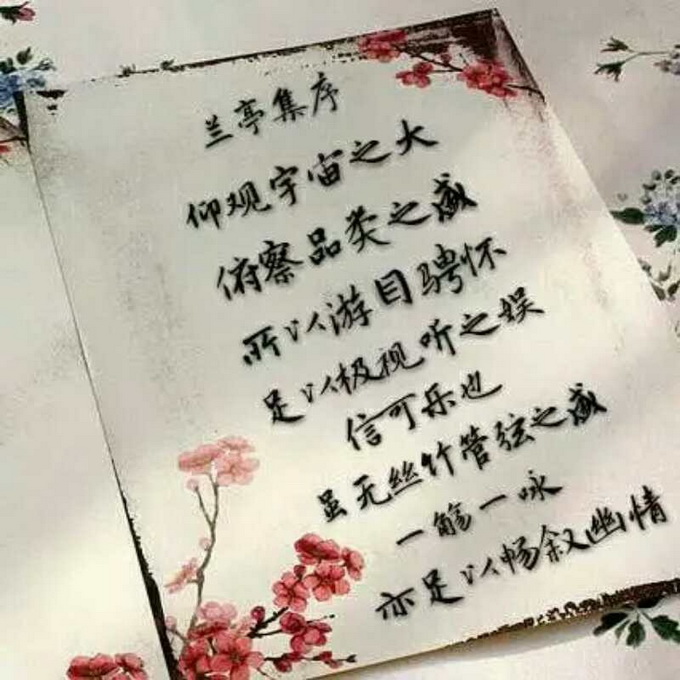 兰亭集序
仰观宇宙之大
俯察品类之盛
所以游目骋怀
足以极视听之娱
信可乐也
虽无丝竹管弦之盛
一觞一咏
亦足以畅叙幽情